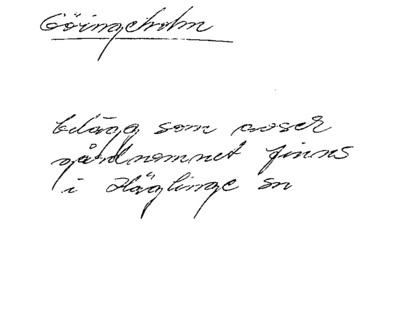 Göingeholm
belägg som avser
gårdnamnet finns
i Häglinge sn